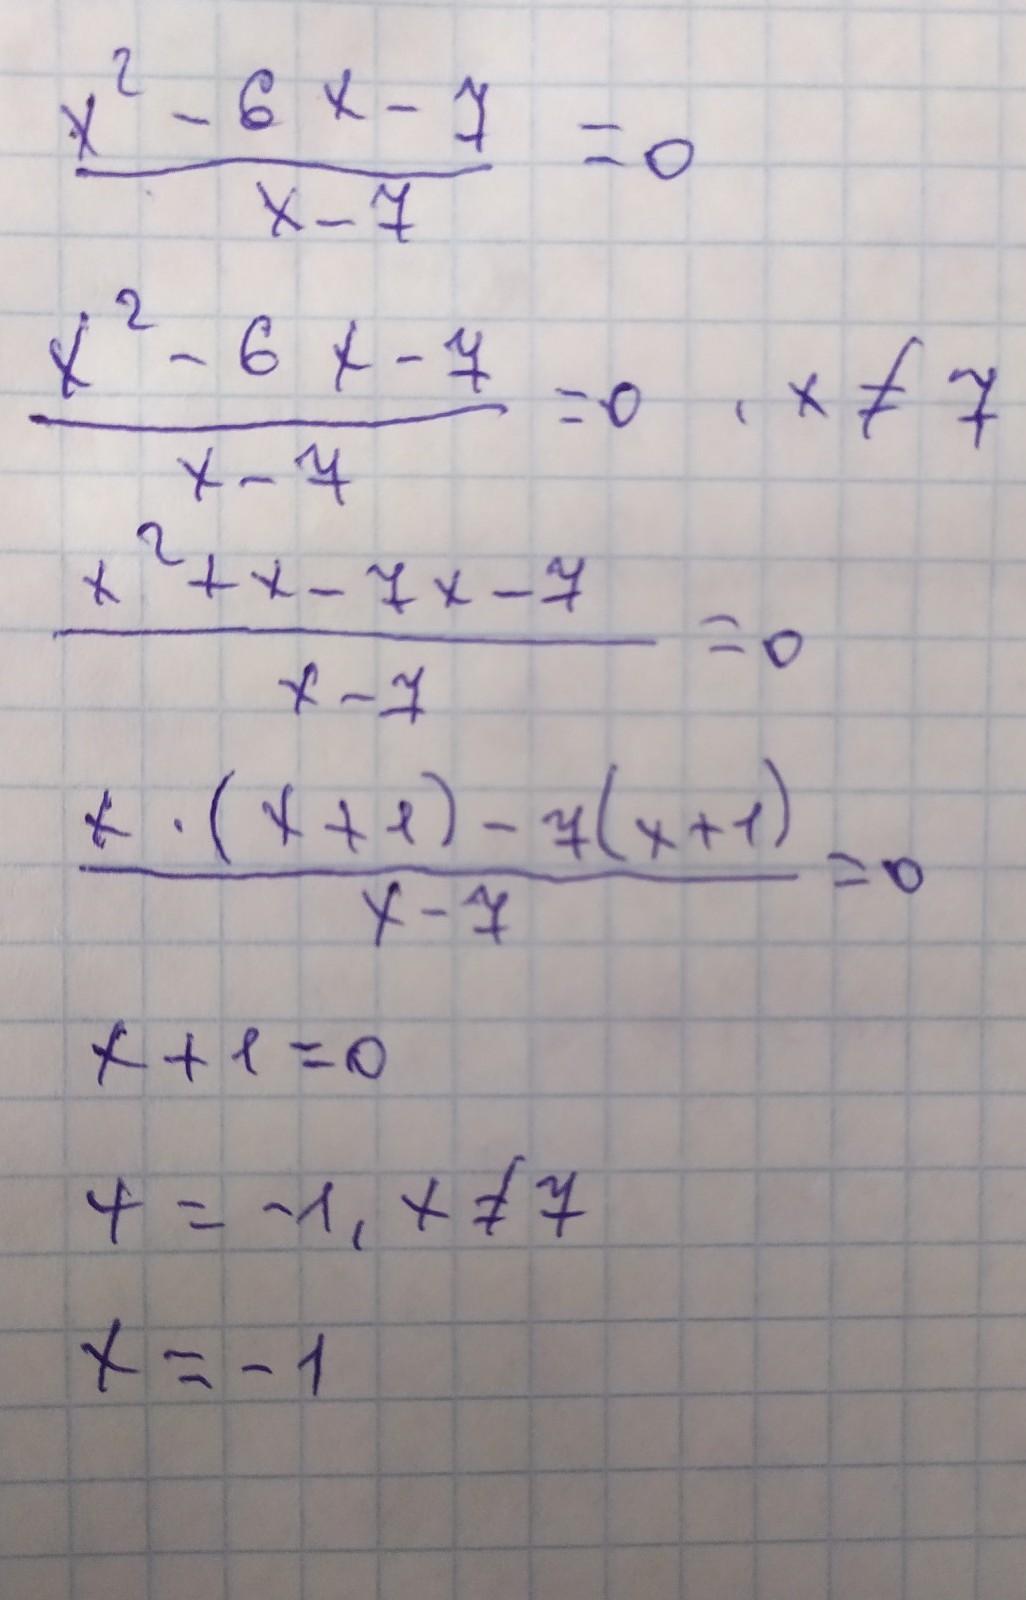 x² - 6x - 7 / x - 7 = 0
x² - 6x - 7 / x - 7 = 0, x ≠ 7
x² + x - 7x - 7 / x - 7 = 0
x · (x + 1) - 7(x + 1) / x - 7 = 0
x + 1 = 0
x = -1, x ≠ 7
x = -1